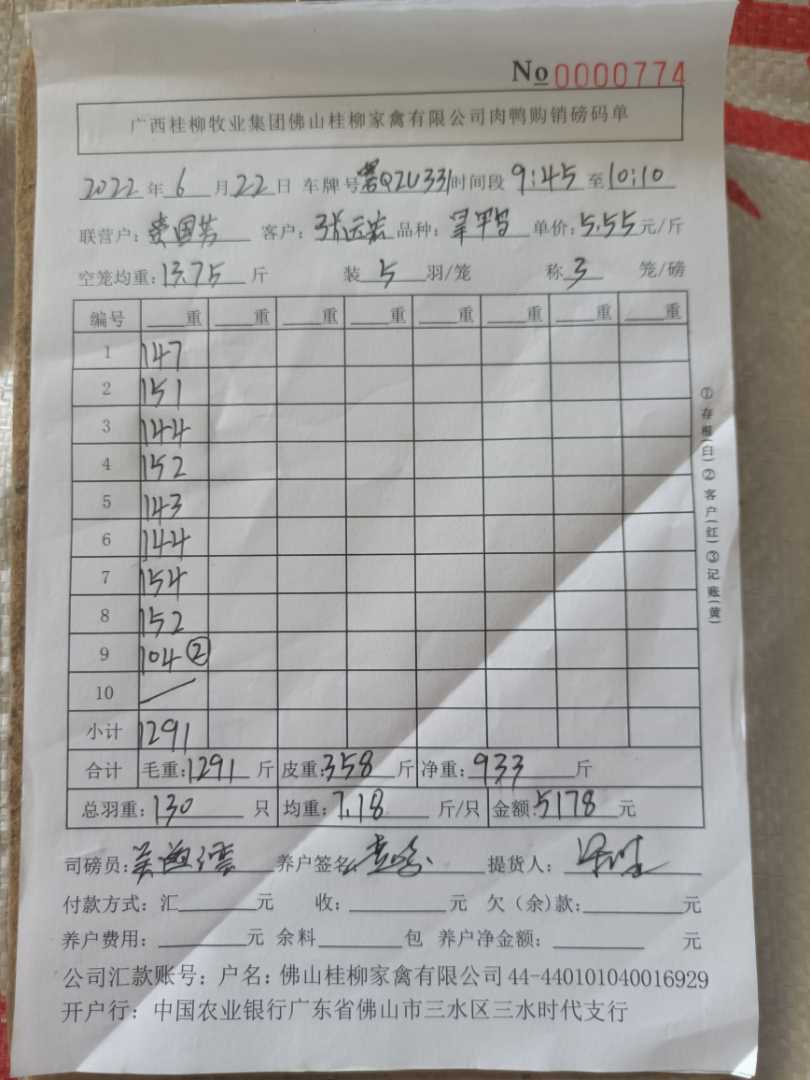 No 0000774
广西桂柳牧业集团佛山桂柳家禽有限公司肉鸭购销磅码单
2022年6月22日 车牌号QZU331时间段9:45至10:10
联营户: 国芳 客户: 张运 品种: 单价:5.55元/斤
空笼均重:13.75斤 装5羽/笼 称3笼/磅
编号 重 重 重 重 重 重 重 重
1 147
2 151
3 144
4 152
5 143
6 144
7 154
8 152
9 104②
10 /
小计 1291
合计 毛重:1291斤 皮重:358斤 净重:933斤
总羽重:130只 均重:7.18斤/只 金额:5178元
司磅员: 养户签名: 提货人:
付款方式: 汇 元 收: 元 欠(余)款: 元
养户费用: 元 余料 包 养户净金额: 元
公司汇款账号: 户名: 佛山桂柳家禽有限公司 44-440101040016929
开户行: 中国农业银行广东省佛山市三水区三水时代支行
①存根(白)②客户(红)③记账(黄)